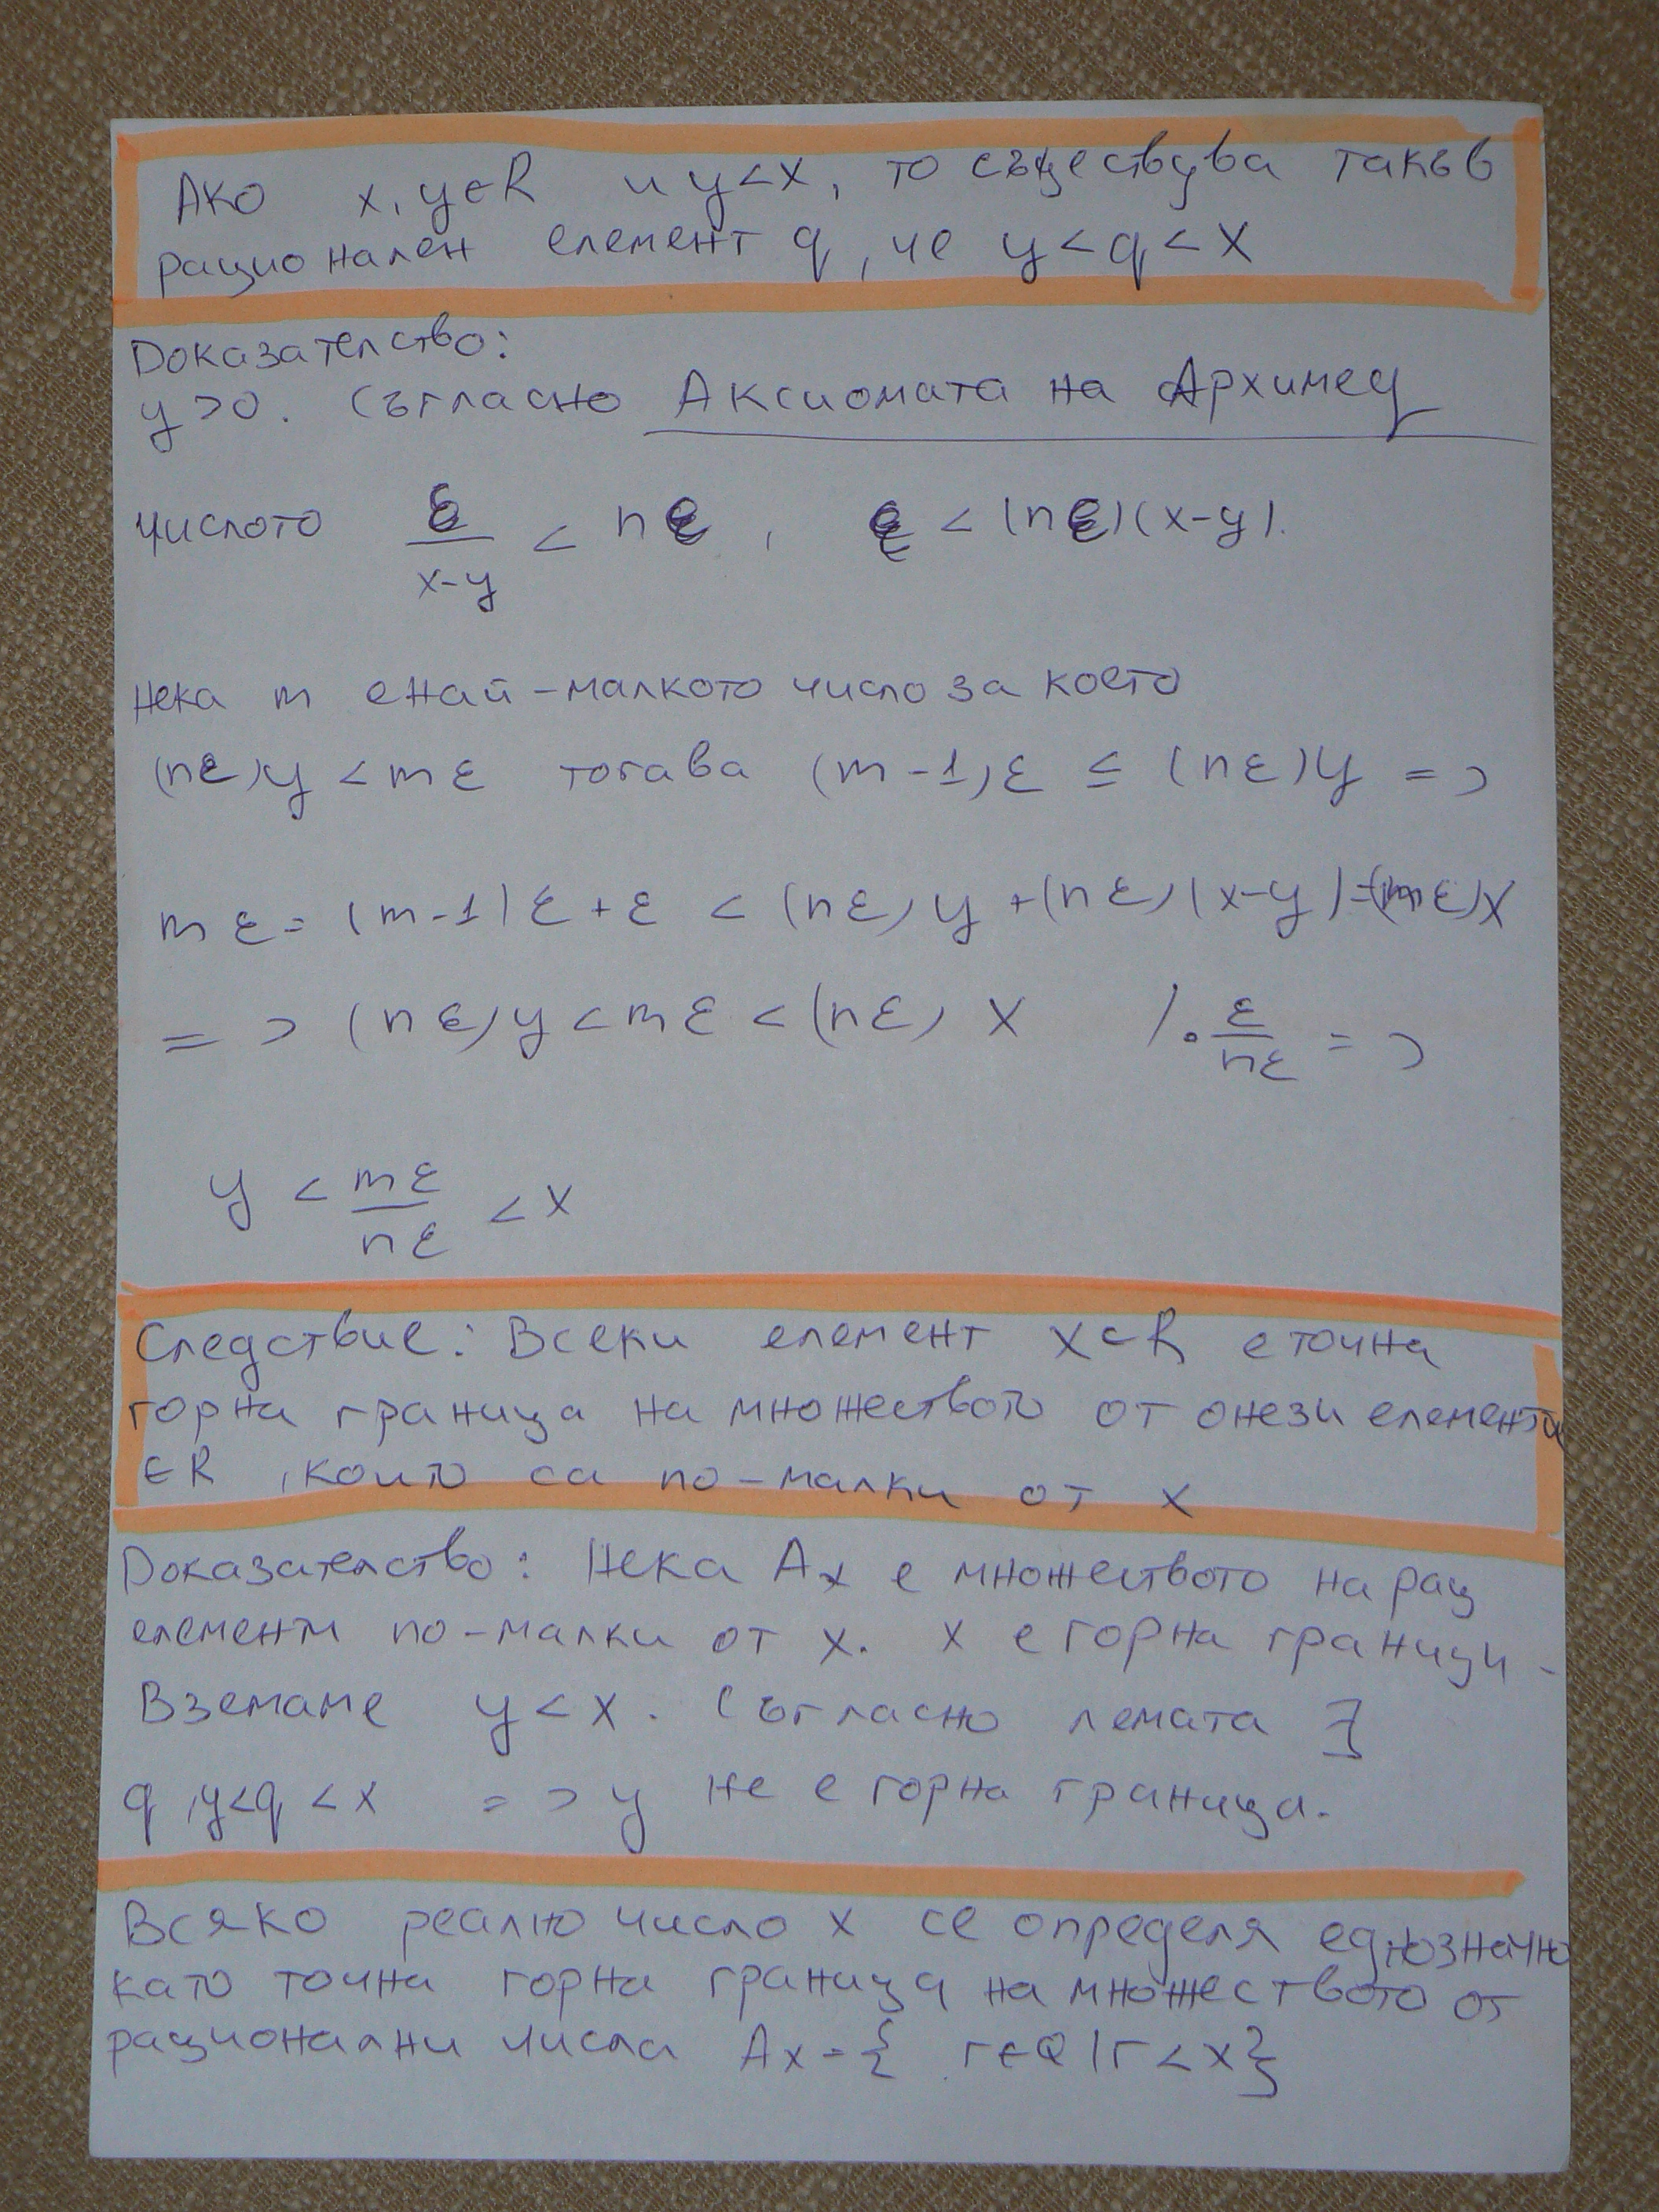 Ако x, y ∈ R и y < x, то съществува такъв
рационален елемент q, че y < q < x
Доказателство:
y > 0. Съгласно Аксиомата на Архимед
числото ε/(x-y) < nε, ε < (nε)(x-y).
Нека m е най-малкото число за което
(nε)y < mε тогава (m-1)ε ≤ (nε)y =>
mε = (m-1)ε + ε < (nε)y + (nε)(x-y) = (nε)x
=> (nε)y < mε < (nε)x /. ε/nε =>
y < mε/nε < x
Следствие: Всеки елемент x ∈ R е точна
горна граница на множеството от онези елементи
∈ R, които са по-малки от x
Доказателство: Нека Ax е множеството на рац
елементи по-малки от x. x е горна граница.
Вземаме y < x. Съгласно лемата ∃
q, y < q < x => y не е горна граница.
Всяко реално число x се определя еднозначно
като точна горна граница на множеството от
рационални числа Ax = { r ∈ Q | r < x}